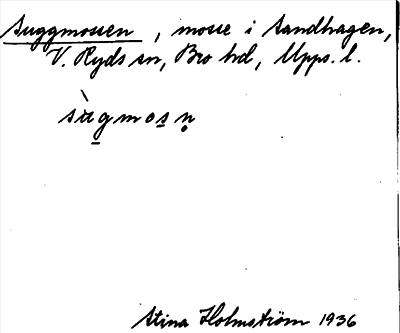 Suggmossen, mosse i Sandhagen,
V. Ryds sn, Bro hd, Upps. l.
sùgmosn̥
Stina Holmström 1936